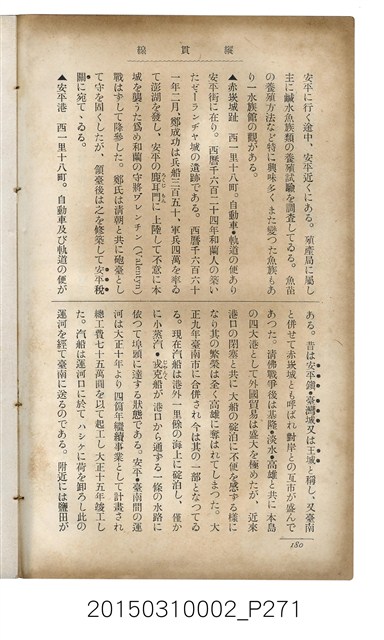 縱貫線
安平に行く途中、安平近くにある。殖產局に屬し
主に鹹水魚族類の養殖試驗を調査してゐる。魚苗
の養殖方法など特に興味多くまた變つた魚族もあ
り一水族館の觀がある。
▲赤崁城趾 西一里十八町。自動車・軌道の便あり
安平街に在り。西曆千六百二十四年和蘭人の築い
たゼーランヂヤ城の遺跡である。西曆千六百六十
一年二月、鄭成功は兵船三百五十、軍兵四萬を率ゐ
て澎湖を發し、安平の鹿耳門に上陸して不意に本
城を襲うた爲め和蘭の守將プレンチン（Valentyn）
戰はずして降參した。鄭氏は淸朝と共に砲臺とし
て守を固くしたが、領臺後は之を修築して安平稅
關に宛てゝゐる。
▲安平港 西一里十八町。自動車及び軌道の便が
ある。昔は安平鎭・臺灣城又は王城と稱し、又臺南
と併せて赤崁城とも呼ばれ對岸との互市が盛んで
あつた。淸佛戰爭後は基隆・淡水・高雄と共に本島
の四大港として外國貿易は盛大を極めたが、近來
港口の閉塞と共に大船の碇泊に不便を感ずる樣に
なり其の繁榮は全く高雄に奪はれてしまつた。大
正九年臺南市に合併され今は其の一部となつてゐ
る。現在汽船は港外一里餘の海上に碇泊し、僅か
に小蒸汽・戎克船が港口から通ずる一條の水路に
依つて埠頭に達する狀態である。安平・臺南間の運
河は大正十年より四箇年繼續事業として計畫され
總工費七十五萬圓を以て起工し大正十五年竣工し
た。汽船は運河口に於てハシケに荷を卸ろし此の
運河を經て臺南に送るのである。附近には鹽田が
180
20150310002_P271